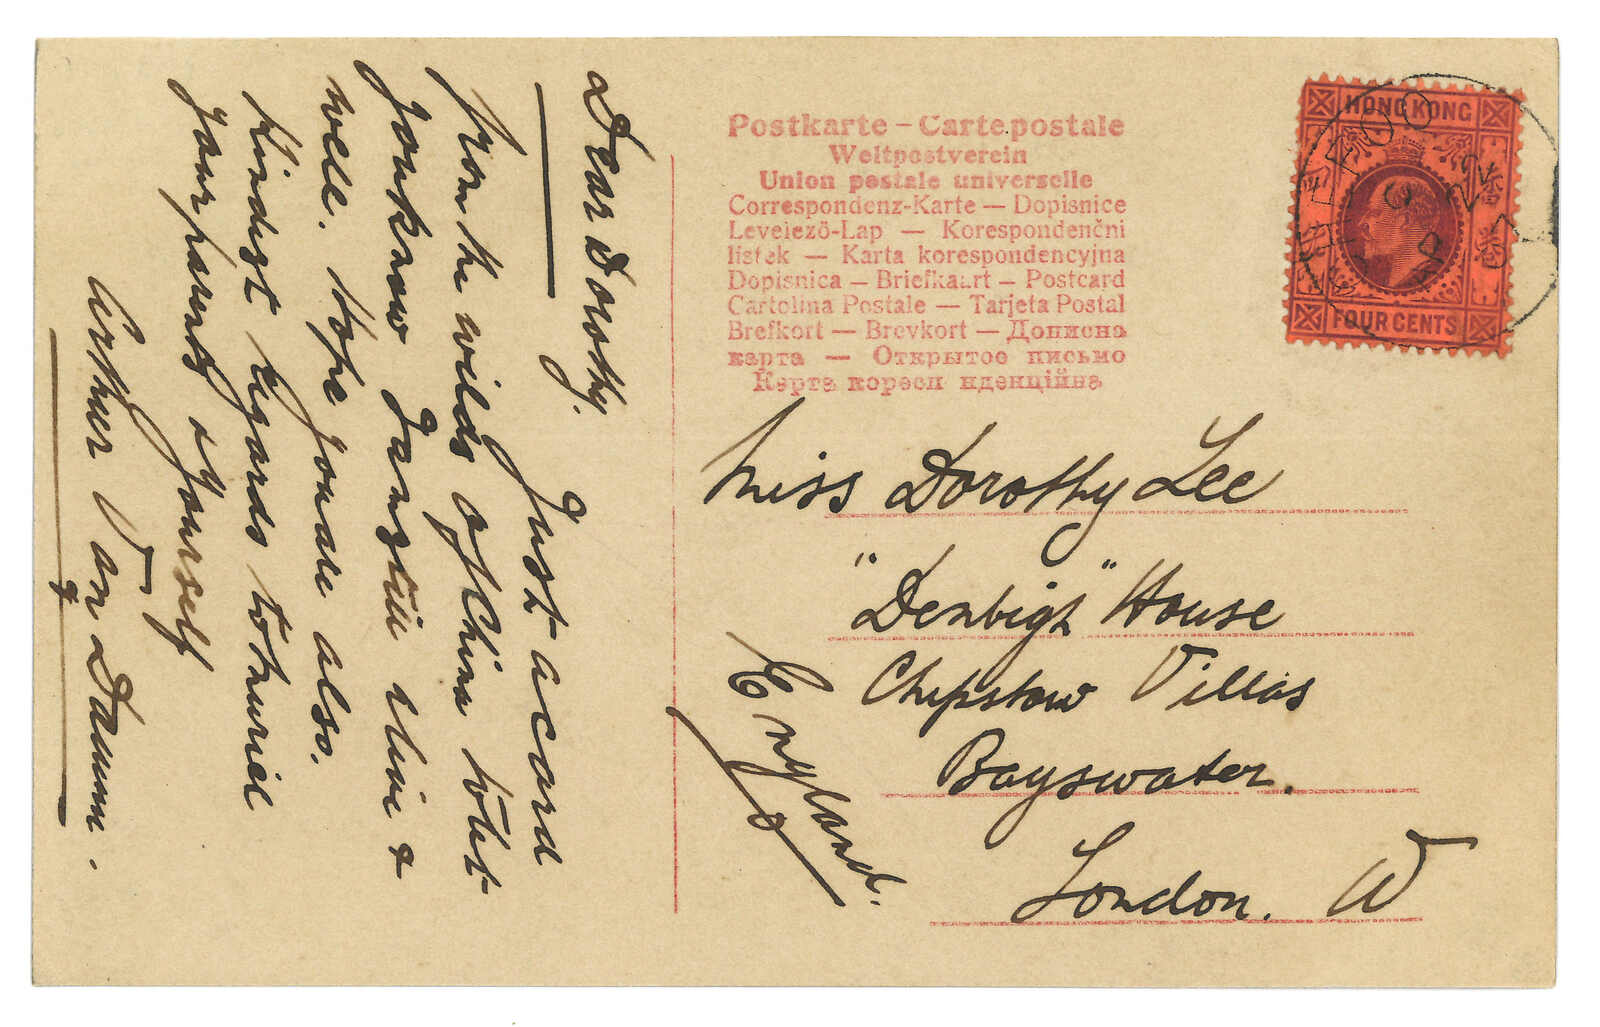 Dear Dorothy.
Just a card
from the wilds of China to let
you know I am still alive &
well. Hope you are also.
Kindest regards to Muriel
your parents & yourself
Arthur Van Damm.
Postkarte – Carte postale
Weltpostverein
Union postale universelle
Correspondenz-Karte — Dopisnice
Levelező-Lap — Korespondenční
lístek — Karta korespondencyjna
Dopisnica — Briefkaart — Postcard
Cartolina Postale — Tarjeta Postal
Brefkort — Brevkort — Дописна
карта — Открытое письмо
Карта кореспонденційна
HONG KONG
FOUR CENTS
CHEFOO
22
Miss Dorothy Lee
"Denbigh" House
Chepstow Villas
Bayswater.
London. W
England.